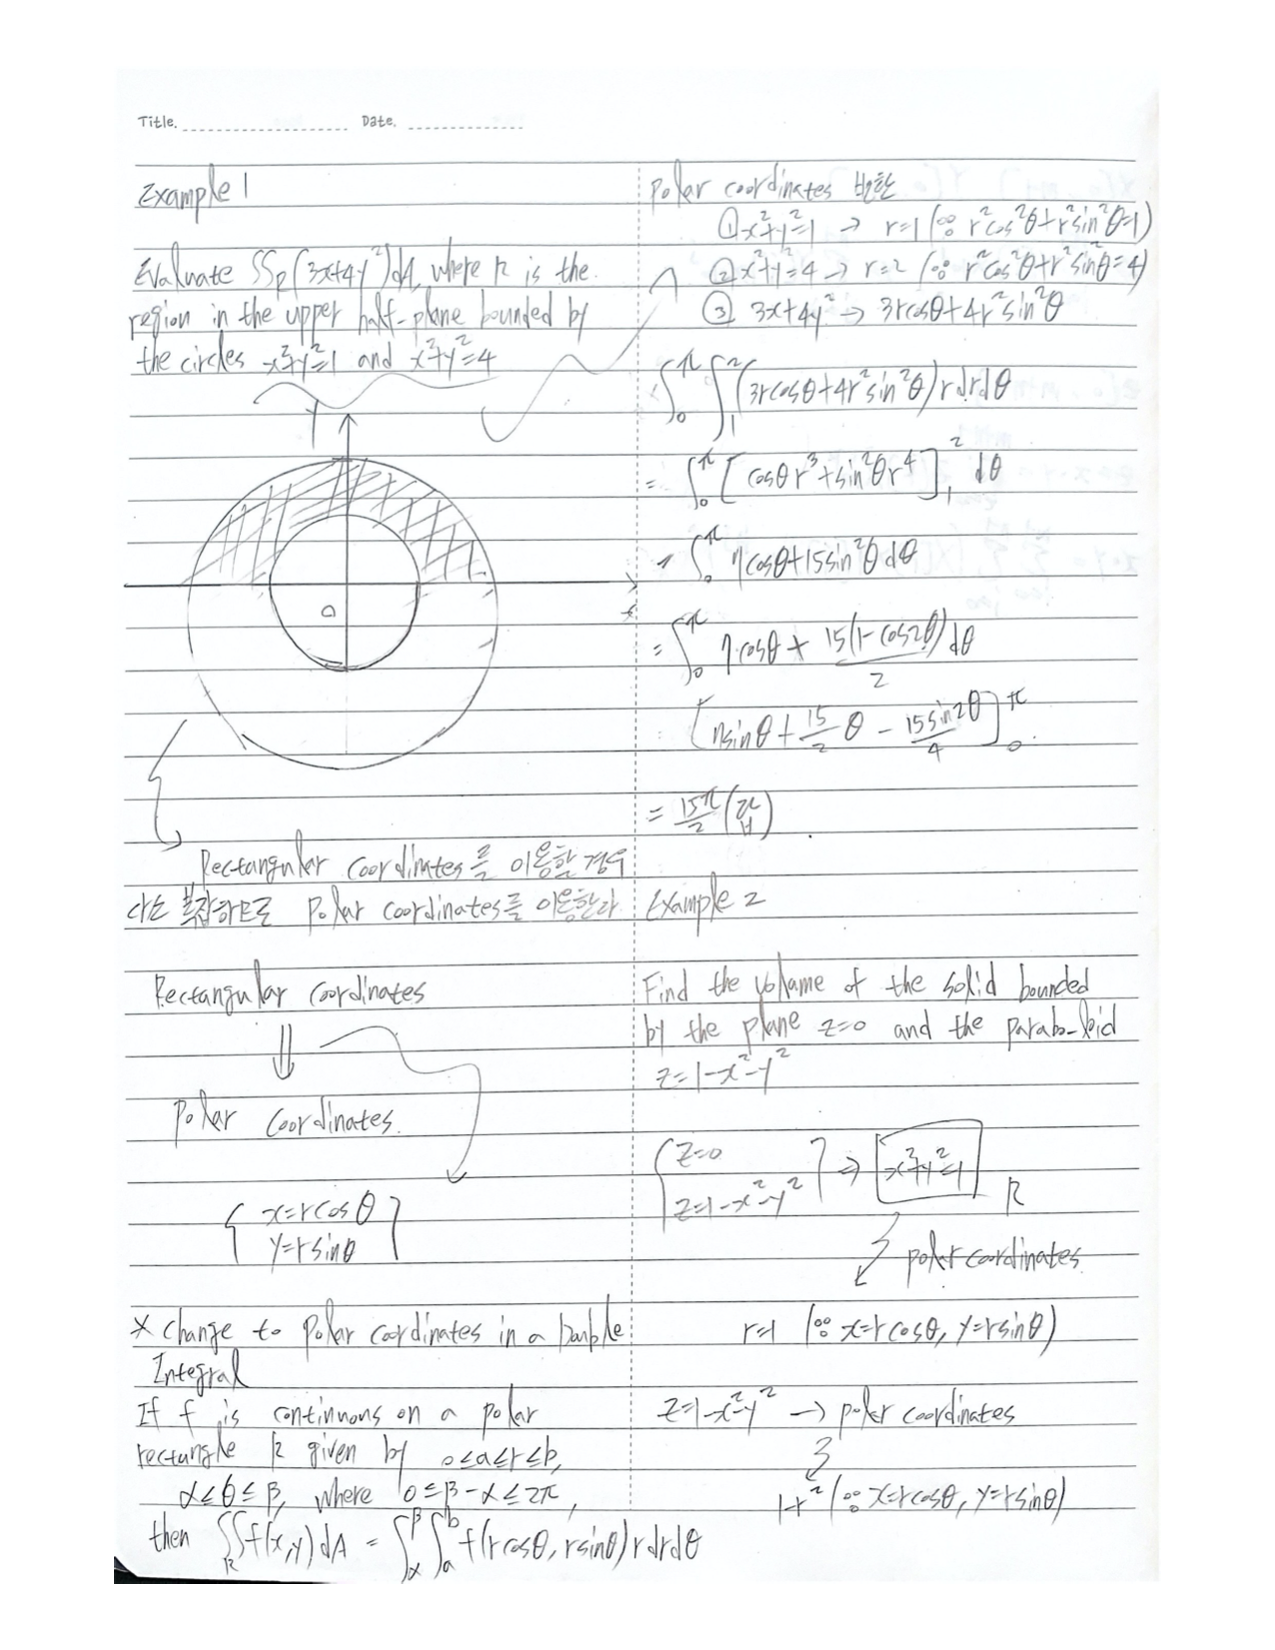 Title. Date.
Example 1
Evaluate SS_R(3x+4y²)dA, where R is the
region in the upper half-plane bounded by
the circles x²+y²=1 and x²+y²=4
Y
O
x
Rectangular coordinates를 이용할 경우
다소 복잡하므로 Polar coordinates를 이용한다.
Rectangular coordinates
⇓
Polar coordinates.
{ x=rcosθ
y=rsinθ }
* change to Polar coordinates in a Double
Integral
If f is continuous on a polar
rectangle R given by 0≤a≤r≤b,
α≤θ≤β, where 0≤β-α≤2π,
then ∬_R f(x,y)dA = ∫_α^β ∫_a^b f(rcosθ, rsinθ)rdrdθ
polar coordinates 변환
① x²+y²=1 → r=1 (∵ r²cos²θ+r²sin²θ=1)
② x²+y²=4 → r=2 (∵ r²cos²θ+r²sin²θ=4)
③ 3x+4y² → 3rcosθ+4r²sin²θ
∫_0^π ∫_1^2 (3rcosθ+4r²sin²θ)rdrdθ
= ∫_0^π [cosθr³+sin²θr⁴]_1^2 dθ
= ∫_0^π 7cosθ+15sin²θdθ
= ∫_0^π 7cosθ + 15(1-cos2θ)/2 dθ
[7sinθ + 15/2 θ - 15sin2θ/4]_0^π
= 15π/2 (답)
Example 2
Find the volume of the solid bounded
by the plane z=0 and the parabo-loid
z=1-x²-y²
{ z=0
z=1-x²-y² } ⇒ x²+y²=1 R
polar coordinates
r=1 (∵ x=rcosθ, y=rsinθ)
z=1-x²-y² → polar coordinates
1-r² (∵ x=rcosθ, y=rsinθ)